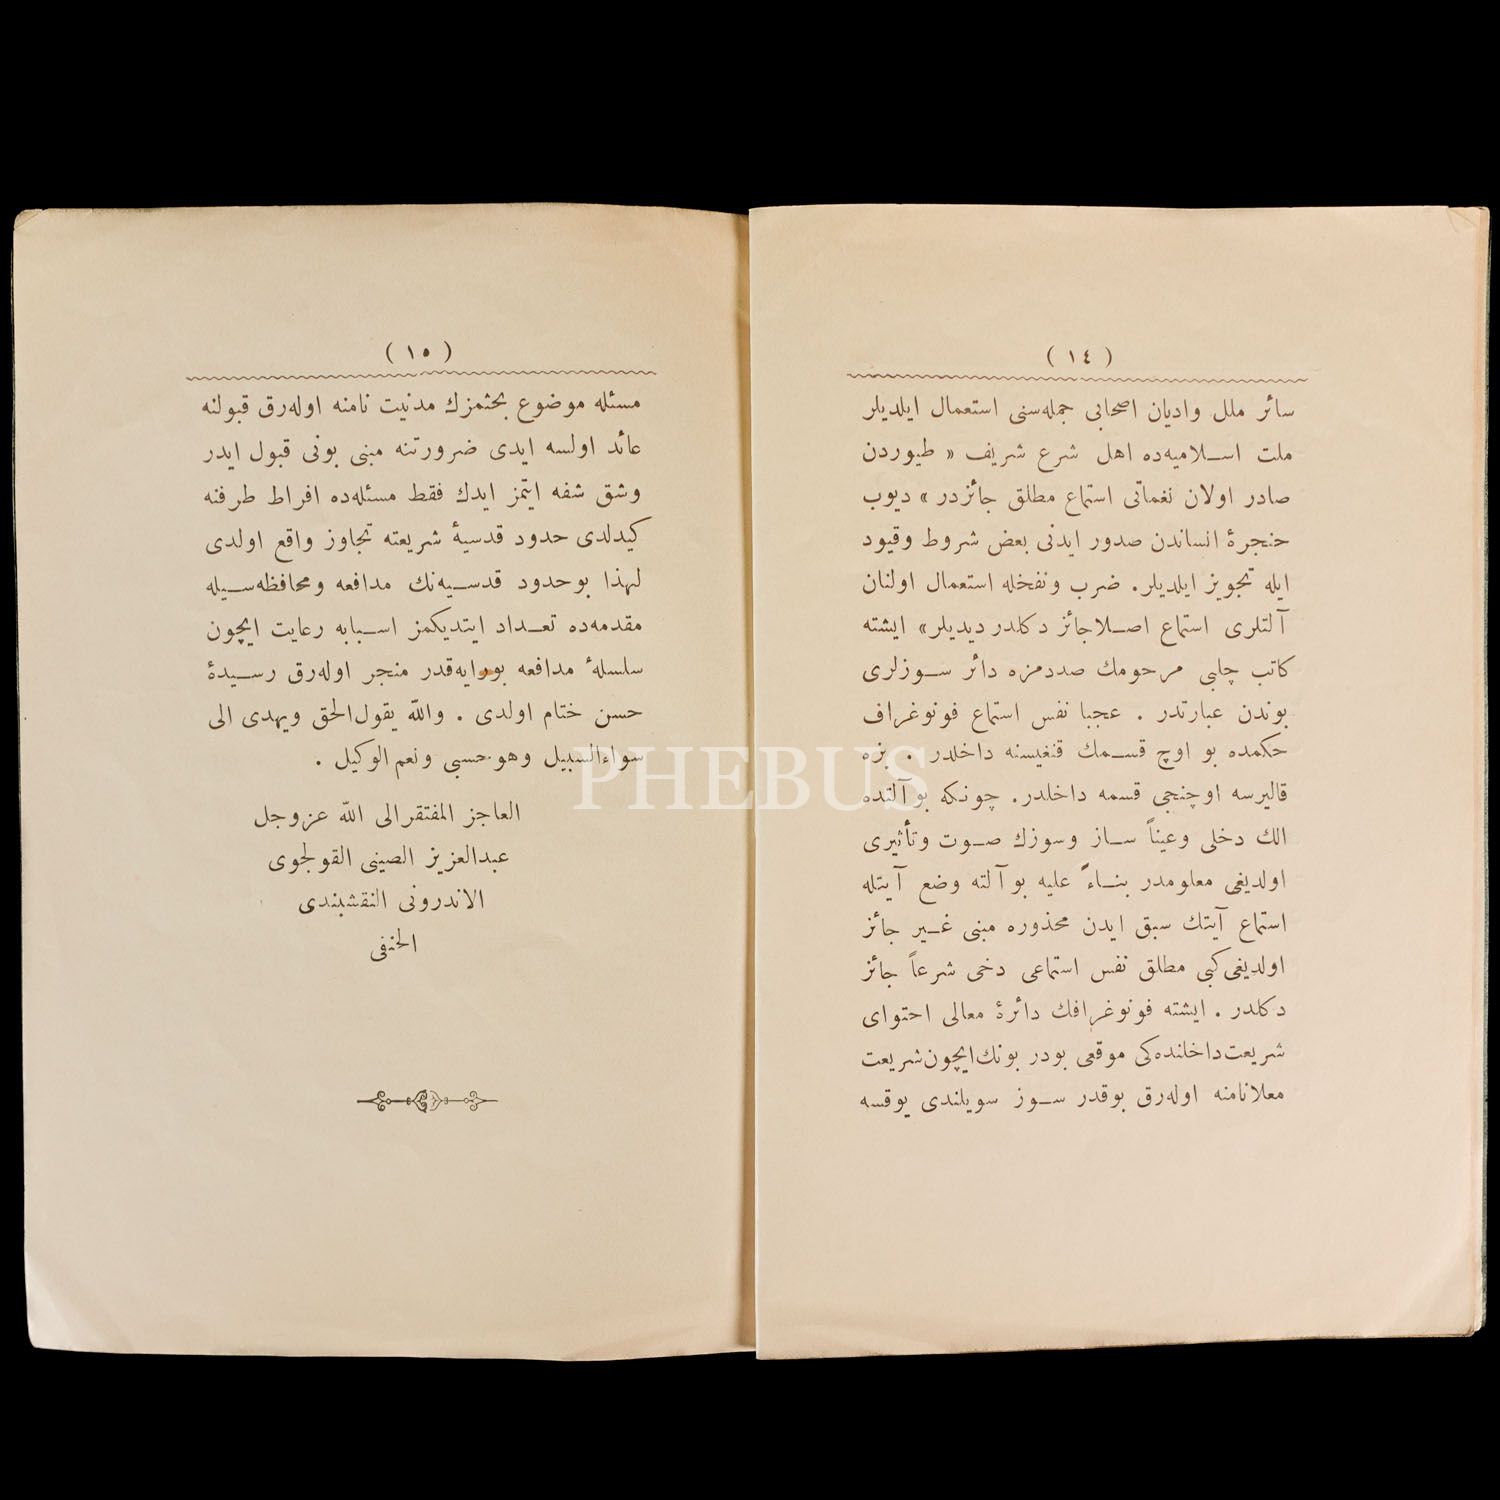 ( ١٤ )
سائر ملل واديان اصحابى جمله‌سنى استعمال ايلديلر
ملت اسلاميه‌ده اهل شرع شريف « طيوردن
صادر اولان نغماتى استماع مطلق جائزدر » ديوب
حنجرهٔ انساندن صدور ايدنى بعض شروط وقيود
ايله تجويز ايلديلر. ضرب ونفخله استعمال اولنان
آلتلرى استماع اصلا جائز دكلدر ديديلر» ايشته
كاتب چلبى مرحومك صددمزه دائر سوزلرى
بوندن عبارتدر . عجبا نفس استماع فونوغراف
حكمده بو اوچ قسمك قنغيسنه داخلدر . بزه
قاليرسه اوچنجى قسمه داخلدر. چونكه بو آلتده
الك دخلى وعيناً ساز وسوزك صوت وتأثيرى
اولديغى معلومدر بناءً عليه بو آلته وضع آيتله
استماع آيتك سبق ايدن محذوره مبنى غير جائز
اولديغى كبى مطلق نفس استماعى دخى شرعاً جائز
دكلدر . ايشته فونوغرافك دائرهٔ معالى احتواى
شريعت داخلنده‌كى موقعى بودر بونك ايچون شريعت
معلا نامنه اوله‌رق بوقدر سوز سويلندى يوقسه
( ١٥ )
مسئله موضوع بحثمزك مدنيت نامنه اوله‌رق قبولنه
عائد اولسه ايدى ضرورتنه مبنى بونى قبول ايدر
وشق شفه ايتمز ايدك فقط مسئله‌ده افراط طرفنه
كيدلدى حدود قدسيهٔ شريعته تجاوز واقع اولدى
لهذا بو حدود قدسيه‌نك مدافعه ومحافظه‌سيله
مقدمه‌ده تعداد ايتديكمز اسبابه رعايت ايچون
سلسلهٔ مدافعه بورايه‌قدر منجر اوله‌رق رسيدهٔ
حسن ختام اولدى . والله يقول الحق ويهدى الى
سواءالسبيل وهو حسبى ونعم الوكيل .
العاجز المفتقر الى الله عزوجل
عبدالعزيز الصينى القولجوى
الاندرونى النقشبندى
الحنفى
PHEBUS